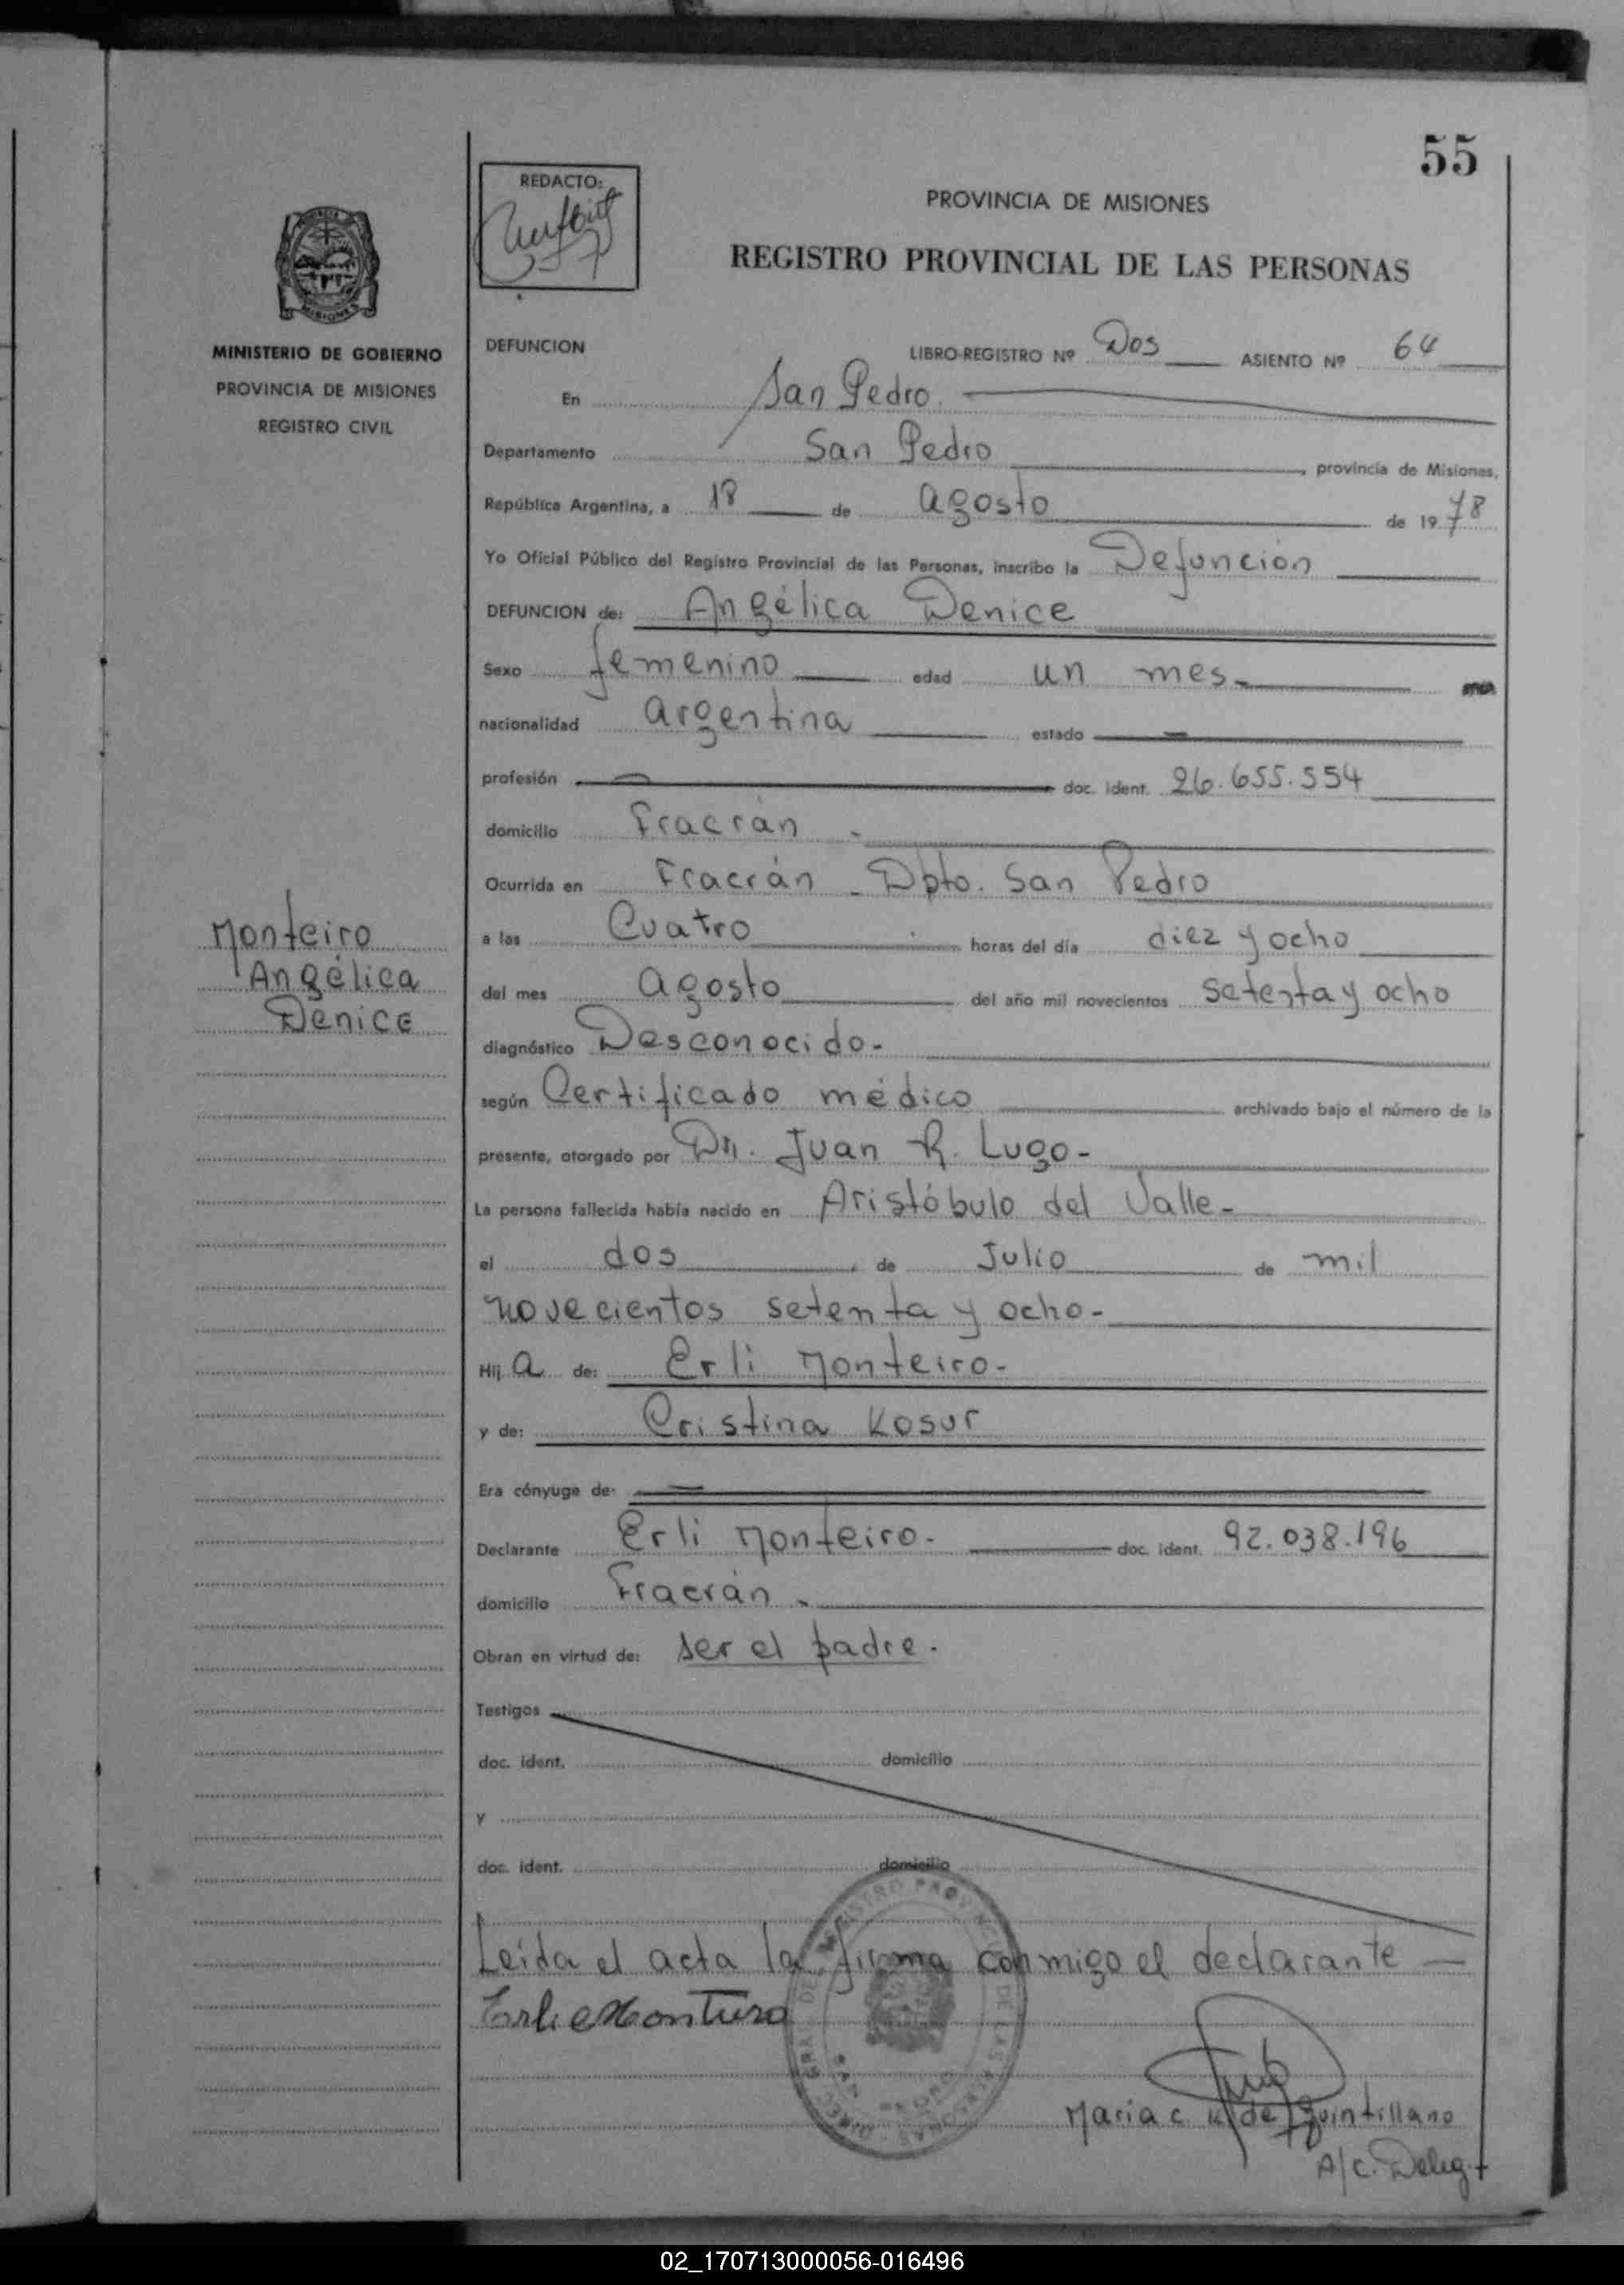 55
REDACTO:
PROVINCIA DE MISIONES
REGISTRO PROVINCIAL DE LAS PERSONAS
MINISTERIO DE GOBIERNO
PROVINCIA DE MISIONES
REGISTRO CIVIL
DEFUNCION LIBRO-REGISTRO Nº Dos ASIENTO Nº 64
En San Pedro.
Departamento San Pedro, provincia de Misiones,
República Argentina, a 18 de agosto de 1978
Yo Oficial Público del Registro Provincial de las Personas, inscribo la Defunción
DEFUNCION de: Angélica Denice
Sexo femenino edad un mes-
nacionalidad argentina estado
profesión doc. ident. 26.655.554
domicilio Fracrán -
Ocurrida en Fracrán - Dpto. San Pedro
a las Cuatro horas del día diez y ocho
del mes agosto del año mil novecientos setenta y ocho
diagnóstico Desconocido-
según Certificado médico archivado bajo el número de la
presente, otorgado por Dr. Juan R. Lugo-
La persona fallecida había nacido en Aristóbulo del Valle-
el dos, de Julio de mil
novecientos setenta y ocho-
Hij a de: Erli Monteiro-
y de: Cristina Kosur
Era cónyuge de:
Declarante Erli Monteiro- doc. ident. 92.038.196
domicilio Fracrán.
Obran en virtud de: ser el padre.
Testigos
doc. ident. domicilio
y
doc. ident. domicilio
Leída el acta la firma conmigo el declarante —
Maria C. K. de Quintillano
A/C. Deleg.
Monteiro
Angélica
Denice
02_170713000056-016496